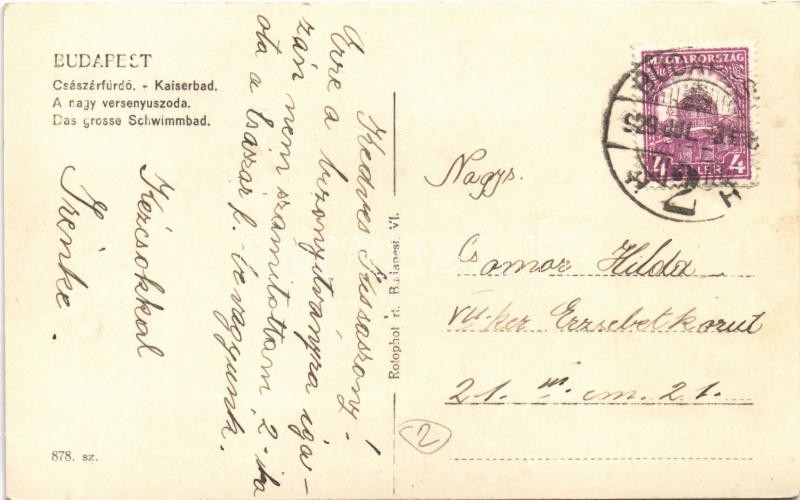 BUDAPEST
Császárfürdő. - Kaiserbad.
A nagy versenyuszoda.
Das grosse Schwimmbad.
Kedves Kisasszony!
Erre a bizonyitványra iga-
zán nem számitottam, 2-ba
óta a Császár f. be vagyunk.
Kézcsókkal
Irénke.
878. sz.
Rotophot rt. Budapest, VI.
MAGYARORSZÁG
4 4
BUDAPEST
929 JUL
2
H
Nagys.
Csomor Hilda
VII. ker Erzsebet korut
21. III. em. 21.
2